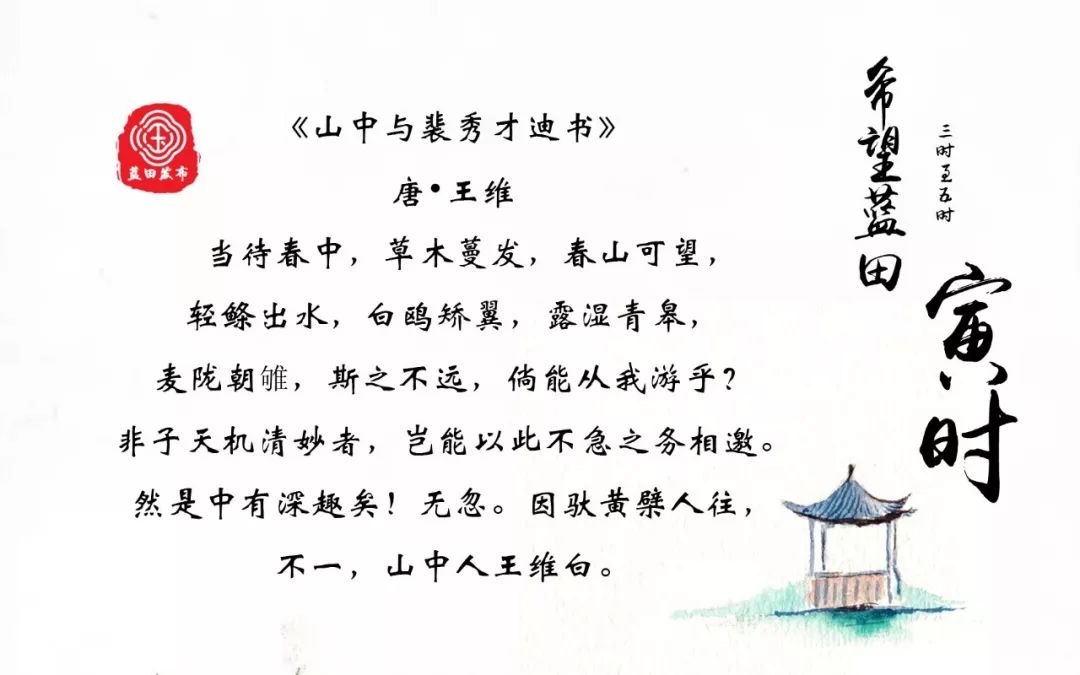 《山中与裴秀才迪书》
唐·王维
当待春中，草木蔓发，春山可望，
轻鲦出水，白鸥矫翼，露湿青皋，
麦陇朝雊，斯之不远，倘能从我游乎？
非子天机清妙者，岂能以此不急之务相邀。
然是中有深趣矣！无忽。因驮黄檗人往，
不一，山中人王维白。
蓝田发布
希望蓝田
三时至五时
寅时